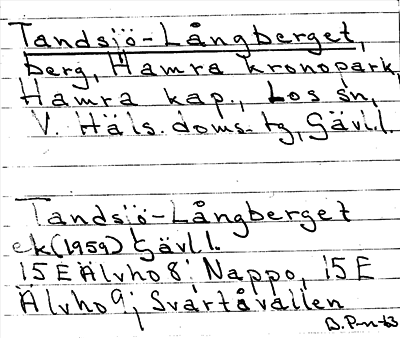 Tandsjö-Långberget,
berg, Hamra kronopark,
Hamra kap., Los sn,
V. Häls. doms. tg, Gävl.l.
Tandsjö-Långberget
ek (1959) Gävl.l.
15 E Älvho 8: Nappo, 15 E
Älvho 9; Svartåvallen
B. P-n-63